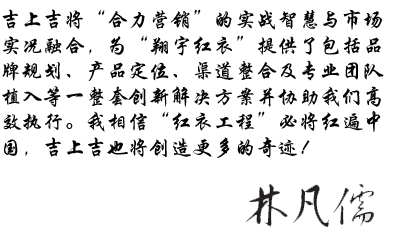 吉上吉将“合力营销”的实战智慧与市场
实况融合，为“翔宇红衣”提供了包括品
牌规划、产品定位、渠道整合及专业团队
植入等一整套创新解决方案并协助我们高
效执行。我相信“红衣工程”必将红遍中
国，吉上吉也将创造更多的奇迹！
林凡儒